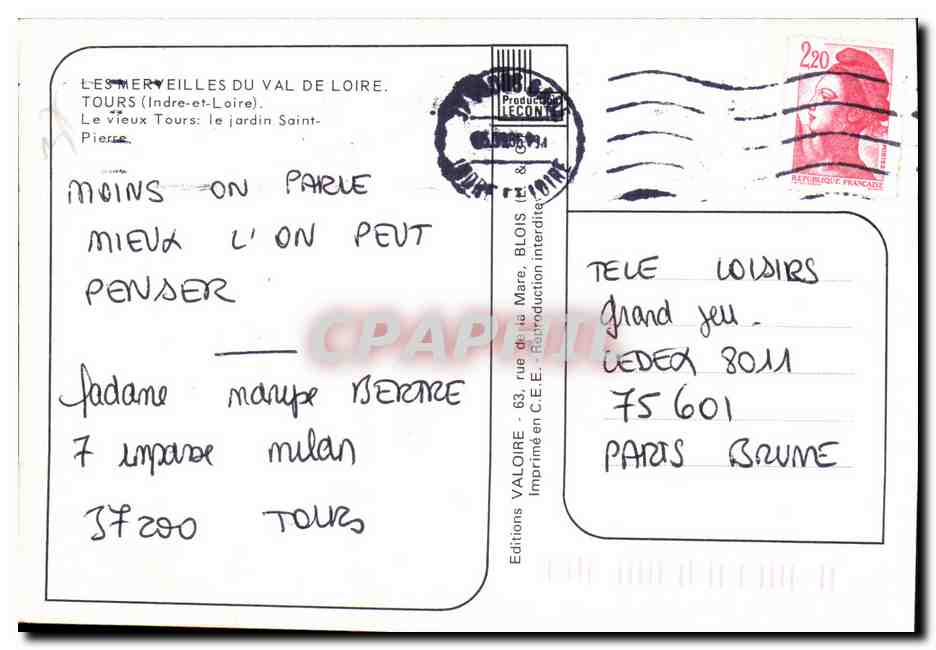 LES MERVEILLES DU VAL DE LOIRE.
TOURS (Indre-et-Loire).
Le vieux Tours: le jardin Saint-
Pierre
MOINS ON PARLE
MIEUX L'ON PEUT
PENSER
BERTRE
7 impasse milan
37200 TOURS
Production
LECONTE
INDRE ET LOIRE
Editions VALOIRE - 63, rue de la Mare, BLOIS
Imprimé en C.E.E. - Reproduction interdite
2,20
REPUBLIQUE FRANÇAISE
TELE LOISIRS
Grand Jeu.
CEDEX 8011
75601
PARIS BRUNE
CPAPHIL